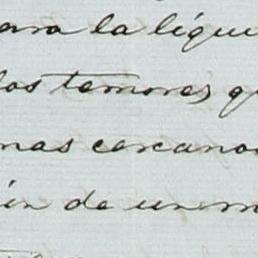 para la liqui
los temores, q
mas cercano
ón de un em